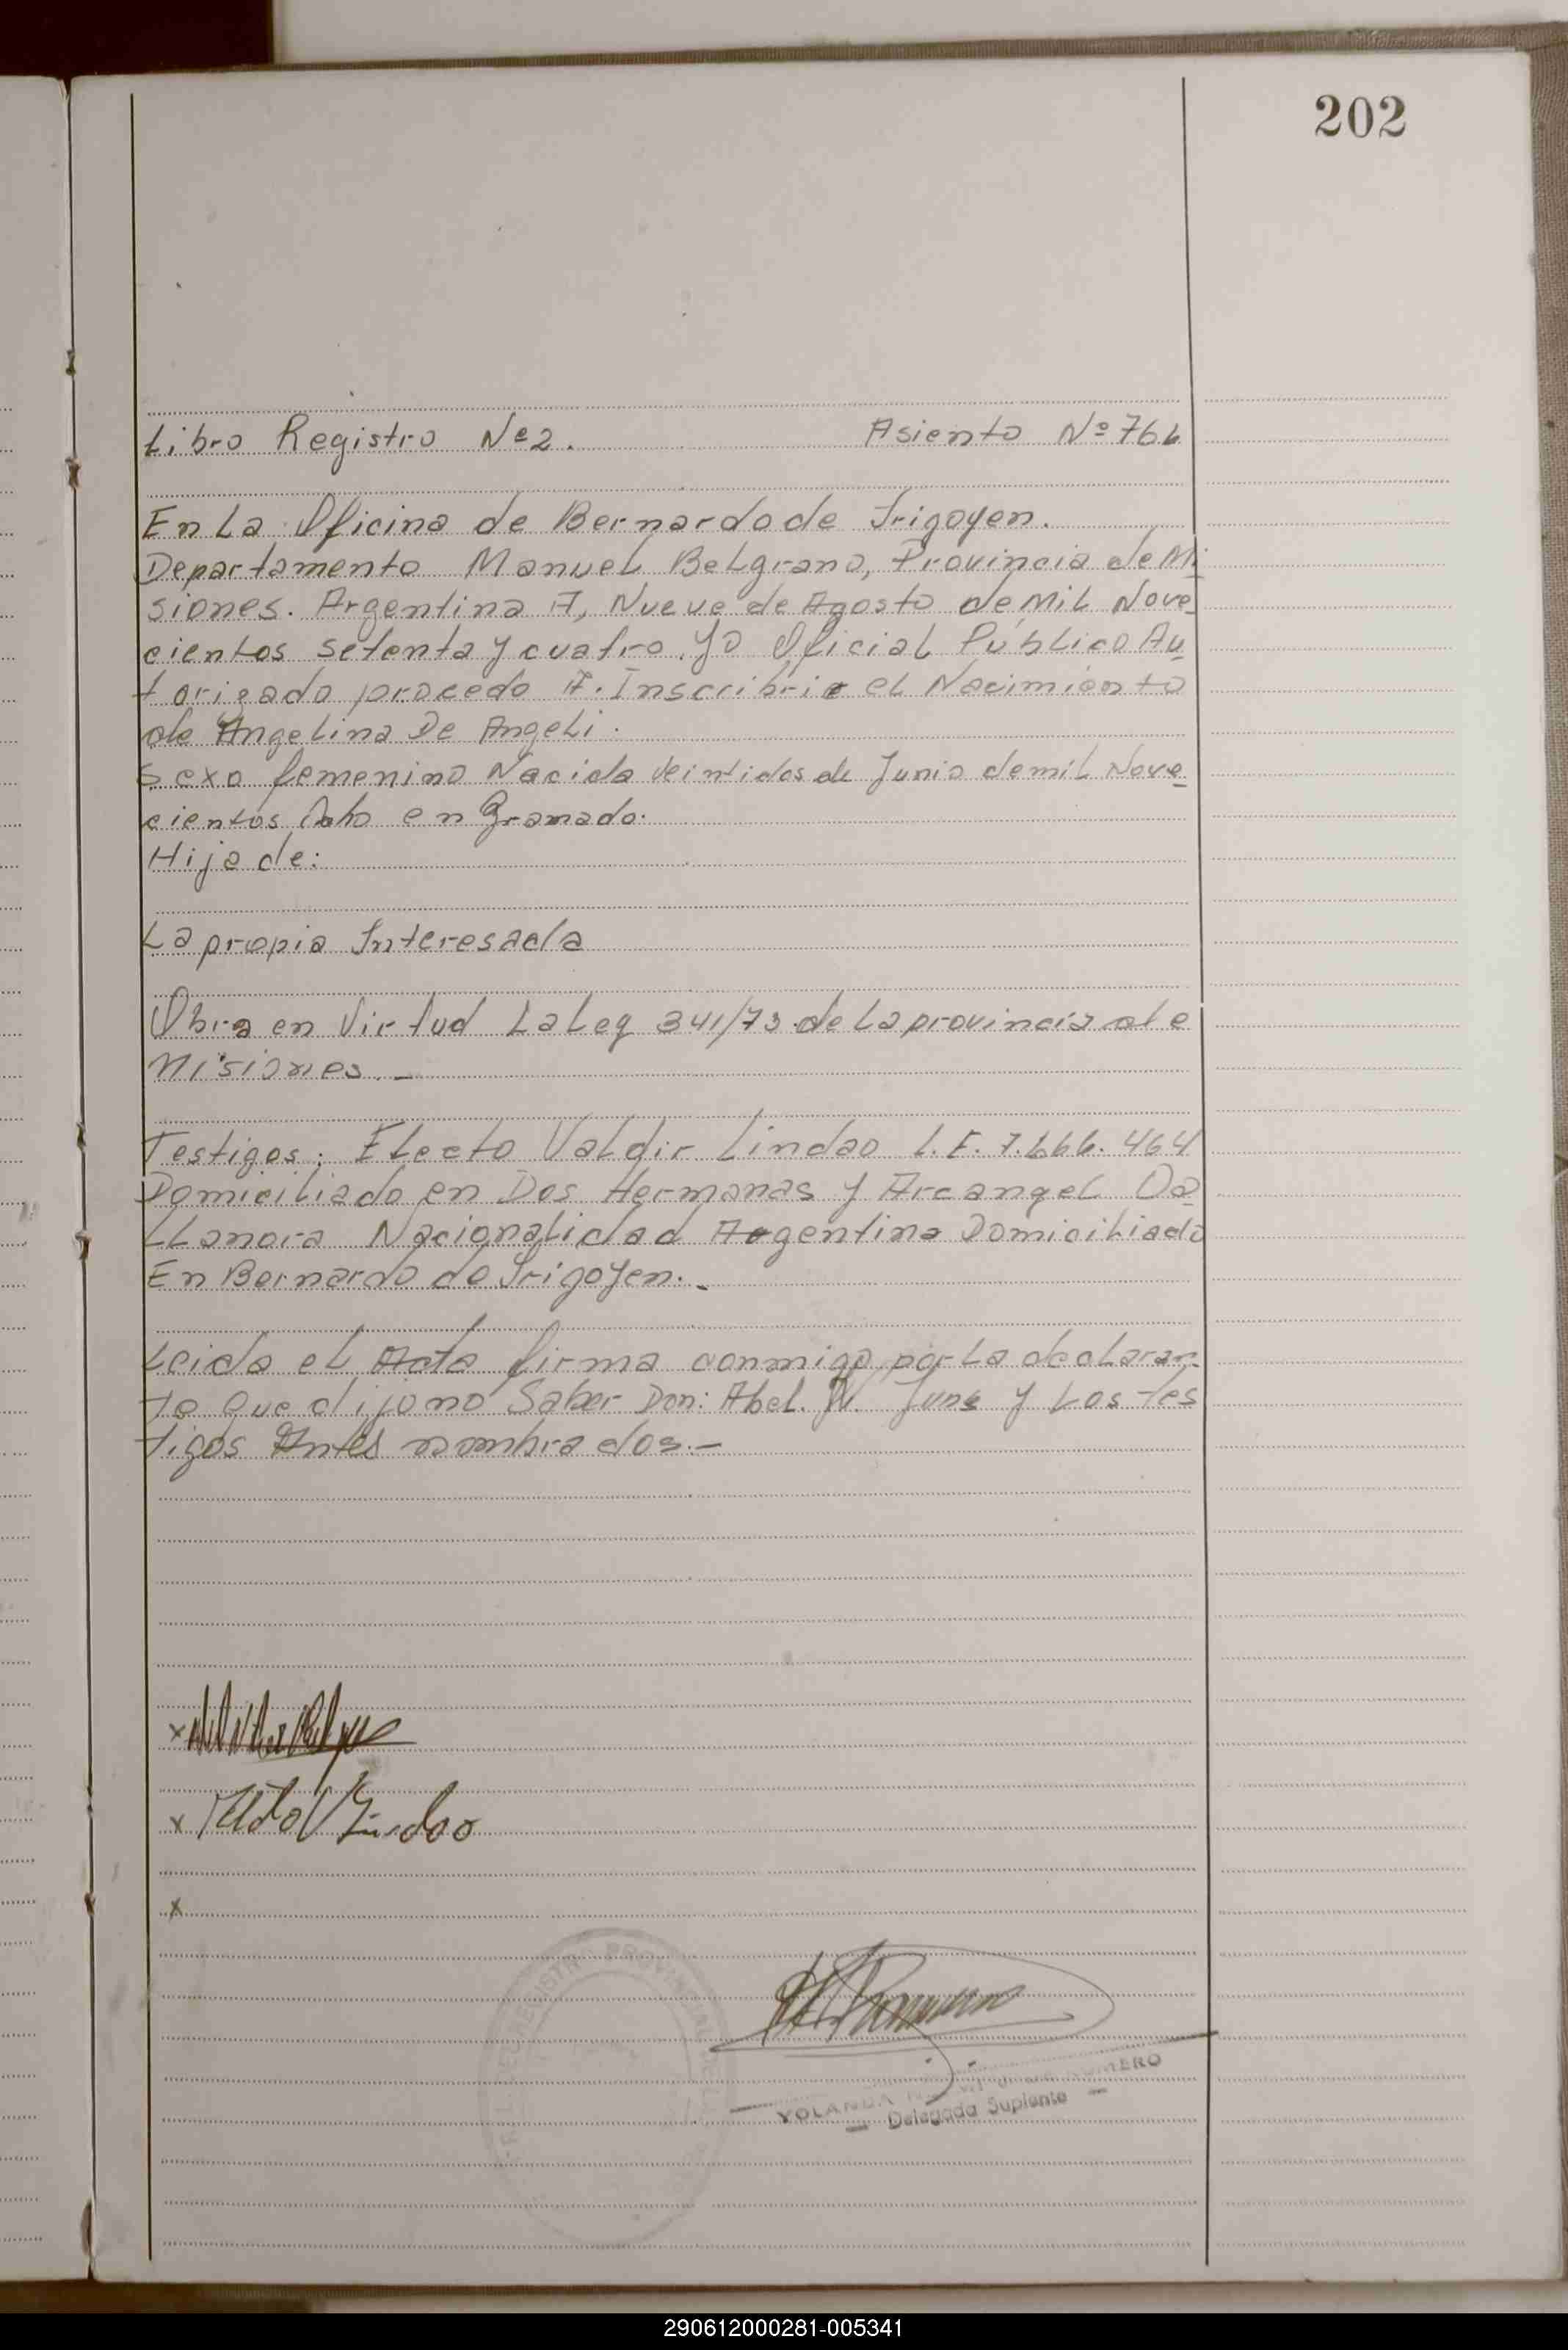 202
Libro Registro Nº 2. Asiento Nº 766
En La Oficina de Bernardo de Irigoyen.
Departamento Manuel Belgrano, Provincia de Mi
siones. Argentina A, Nueve de Agosto de Mil Nove
cientos setenta y cuatro. Yo Oficial Público Au
torizado procedo A. Inscribir el Nacimiento
de Angelina De Angeli.
Sexo femenino Nacida Veintidos de Junio de mil Nove
cientos Ocho en Gramado.
Hija de:
La propia Interesada
Obra en Virtud La Ley 341/73 de la provincia de
Misiones. -
Testigos: Electo Valdir Lindao L.E. 7.666.464
Domiciliado en Dos Hermanas y Arcangel Da
LLanora Nacionalidad Argentina Domiciliado
En Bernardo de Irigoyen. -
Leida el Acta firma conmigo por La declaran
te que dijo no Saber Don: Abel. N. y Los Tes
tigos Antes nombrados. -
x
x Lindao
x
REGISTRO PROVINCIAL DE LAS
YOLANDA ROMERO
Delegada Suplente
290612000281-005341